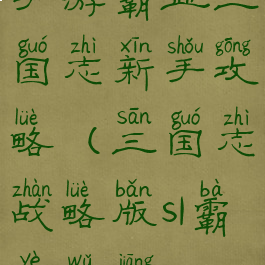 手游霸业三
guó zhì xīn shǒu gōng
国志新手攻
lüè sān guó zhì
略(三国志
zhàn lüè bǎn bà
战略版sl霸
yè wǔ jiāng